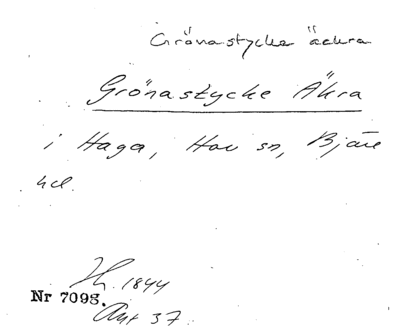 Grönastycke äckra
Grönastycke Åkra
i Haga, Hov sn, Bjäre
hd.
1844
Nr 7098.
Akt 37.